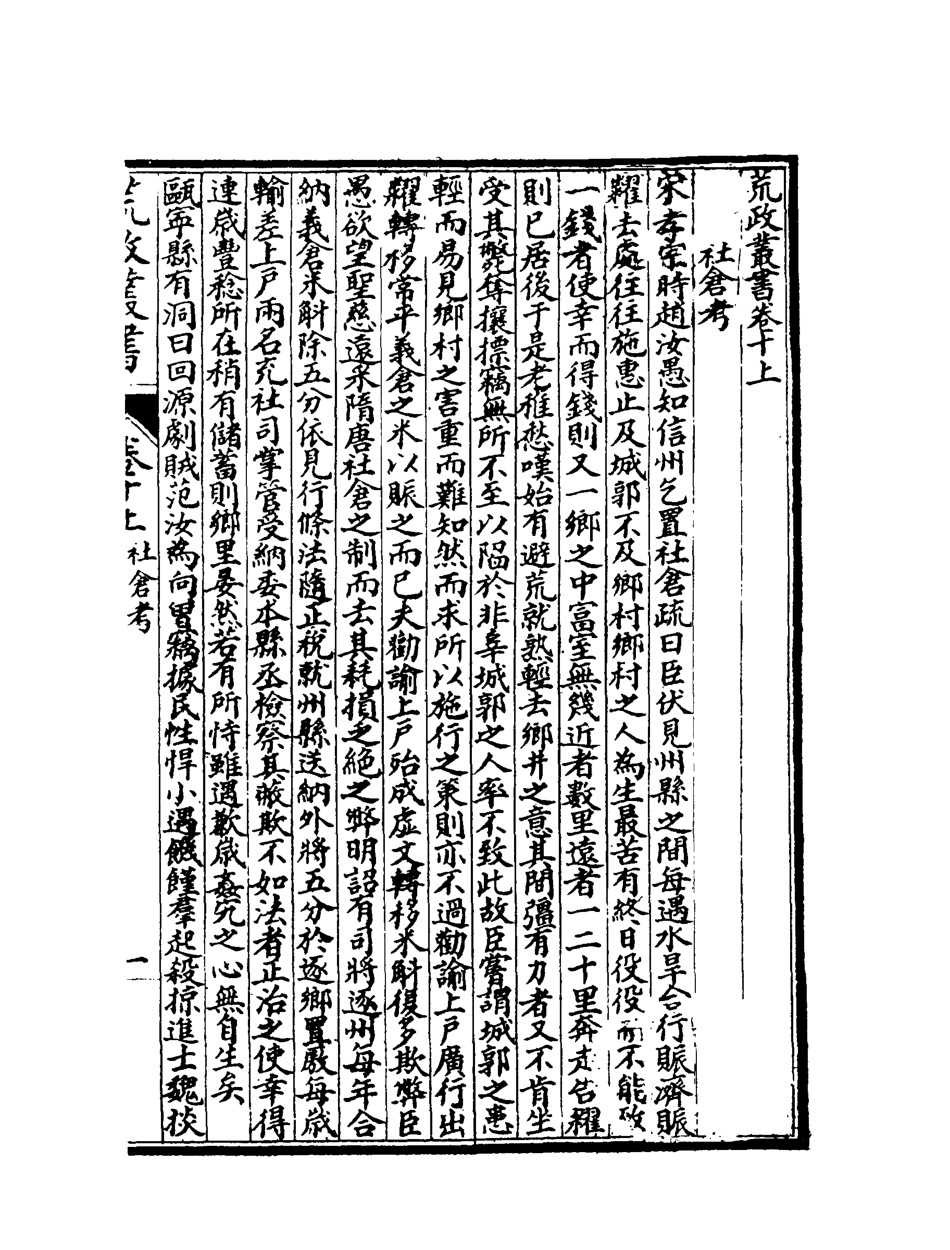 荒政叢書卷十上
社倉考
宋孝宗時趙汝愚知信州乞置社倉疏曰臣伏見州縣之間每遇水旱合行賑濟賑
糶去處往往施惠止及城郭不及鄉村鄉村之人為生最苦有終日役役而不能致
一錢者使幸而得錢則又一鄉之中富室無幾近者數里遠者一二十里奔走告糴
則已居後于是老稚愁嘆始有避荒就熟輕去鄉井之意其間彊有力者又不肯坐
受其斃奪攘摽竊無所不至以陷於非辜城郭之人率不致此故臣嘗謂城郭之患
輕而易見鄉村之害重而難知然而求所以施行之策則亦不過勸諭上戶廣行出
糶轉移常平義倉之米以賑之而已夫勸諭上戶殆成虛文轉移米斛復多欺弊臣
愚欲望聖慈遠采隋唐社倉之制而去其耗損乏絕之弊明詔有司將逐州每年合
納義倉米斛除五分依見行條法隨正稅就州縣送納外將五分於逐鄉置廒每歲
輸差上戶兩名充社司掌管受納委本縣丞檢察其蔽欺不如法者正治之使幸得
連歲豐稔所在稍有儲蓄則鄉里晏然若有所恃雖遇歉歲姦宄之心無自生矣
甌寧縣有洞曰回源劇賊范汝為向嘗竊據民性悍小遇饑饉羣起殺掠進士魏掞
荒政叢書
卷十上
社倉考
一